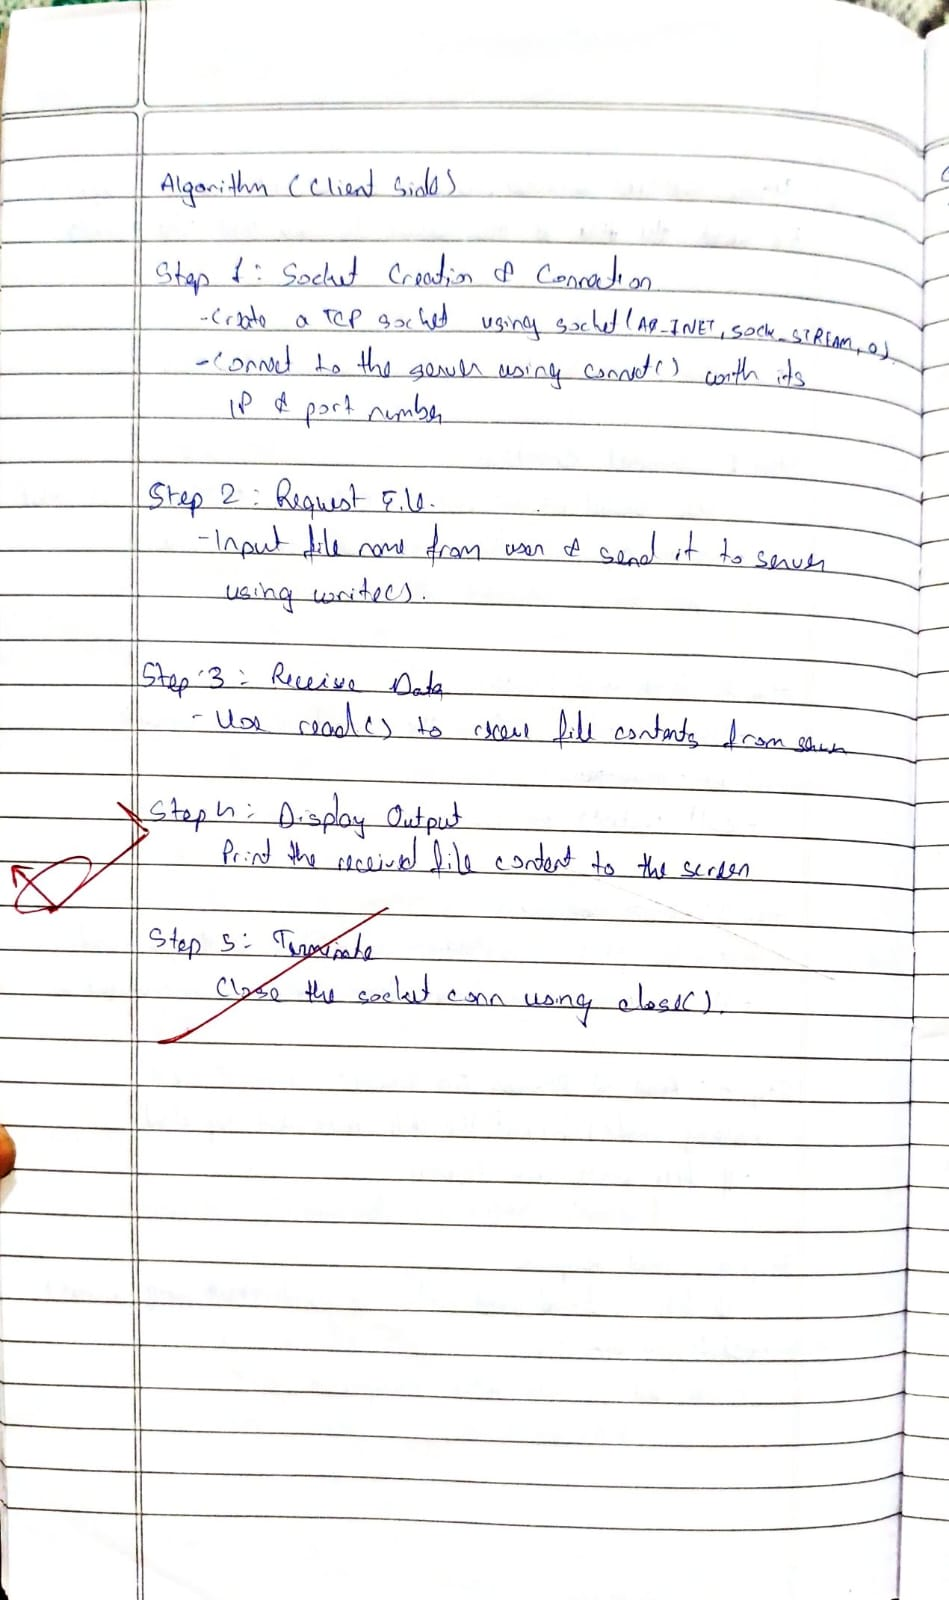 Algorithm (Client Side)
Step 1: Socket Creation & Connection
- Create a TCP socket using socket(AF_INET, SOCK_STREAM, 0)
- Connect to the server using connect() with its
IP & port number
Step 2: Request File.
- Input file name from user & send it to server
using write().
Step 3: Receive Data
- Use read() to receive file contents from server
Step 4: Display Output
Print the received file content to the screen
Step 5: Terminate
Close the socket conn using close().